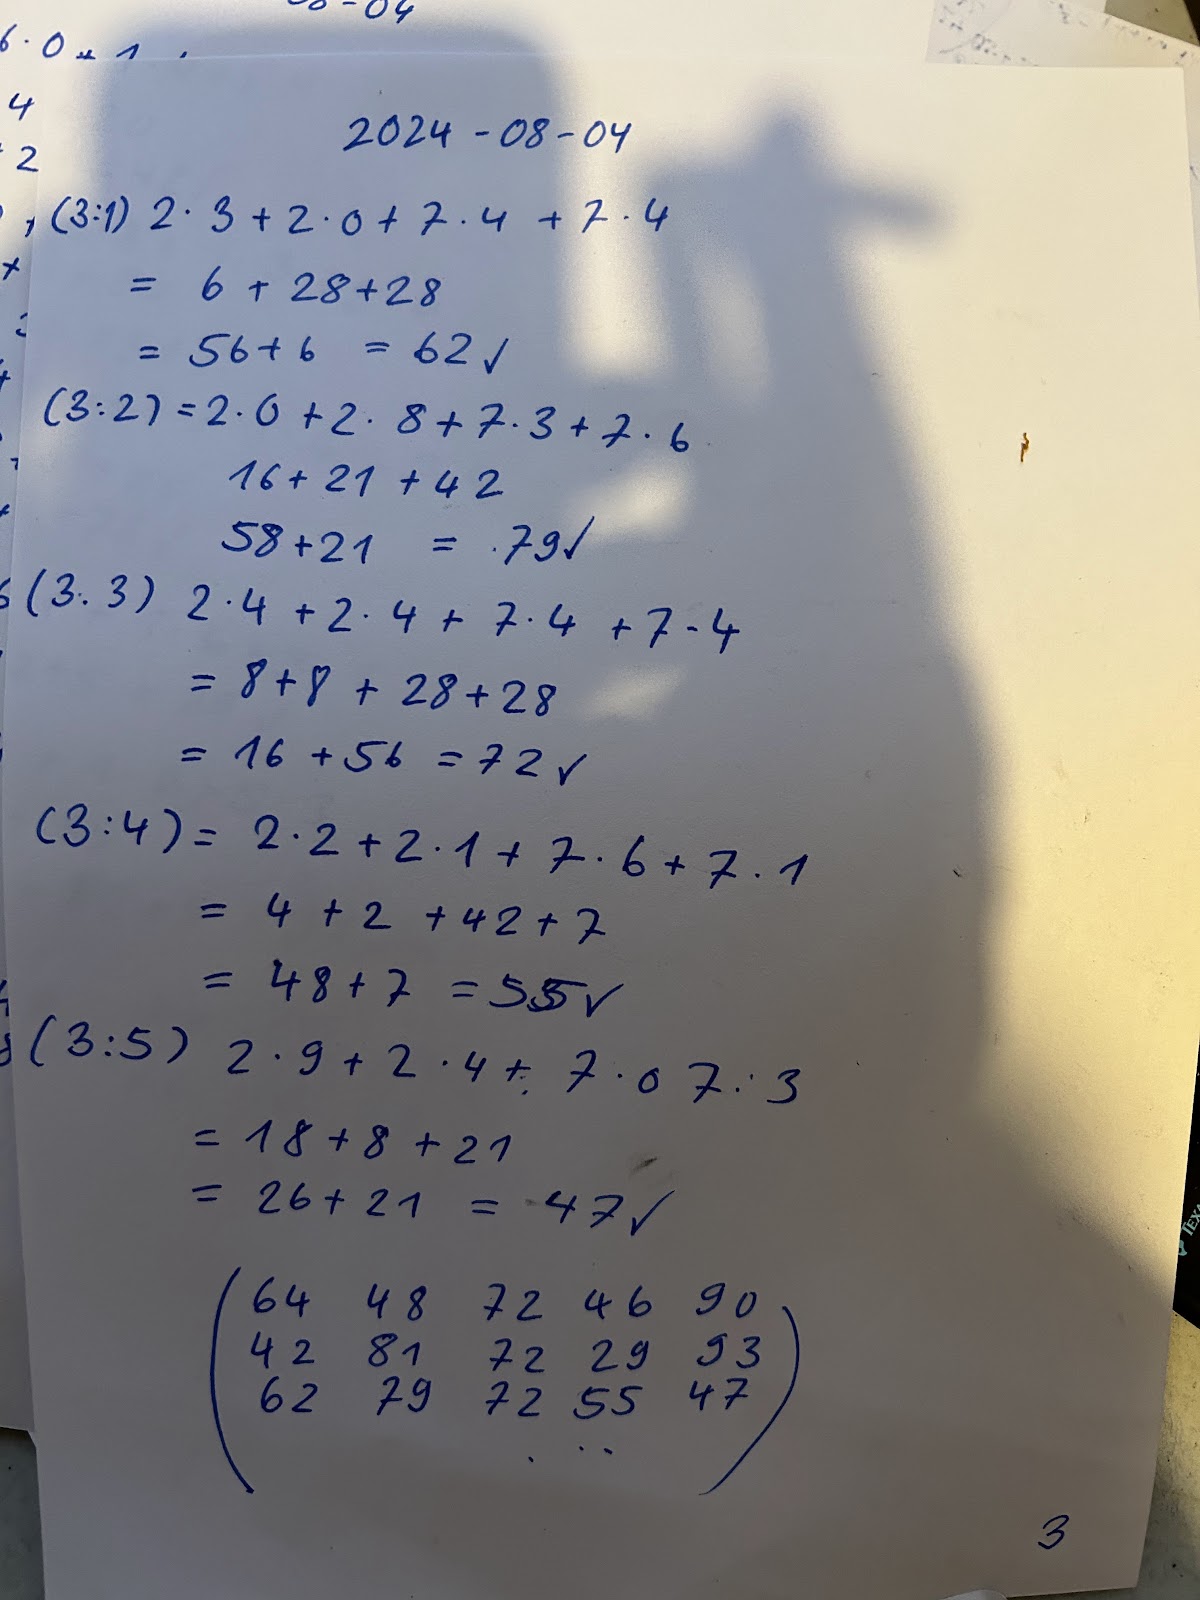 08-04
6·0+1
4
2
2024-08-04
(3:1) 2·3+2·0+7·4+7·4
= 6+28+28
= 56+6 = 62✓
(3:2)=2·0+2·8+7·3+7·6
16+21+42
58+21 = 79✓
(3.3) 2·4+2·4+7·4+7·4
= 8+8+28+28
= 16+56=72✓
(3:4)= 2·2+2·1+7·6+7·1
= 4+2+42+7
= 48+7 =55✓
(3:5) 2·9+2·4+7·0 7·3
= 18+8+21
= 26+21 = 47✓
64 48 72 46 90
42 81 72 29 93
62 79 72 55 47
. ..
3
TEXA